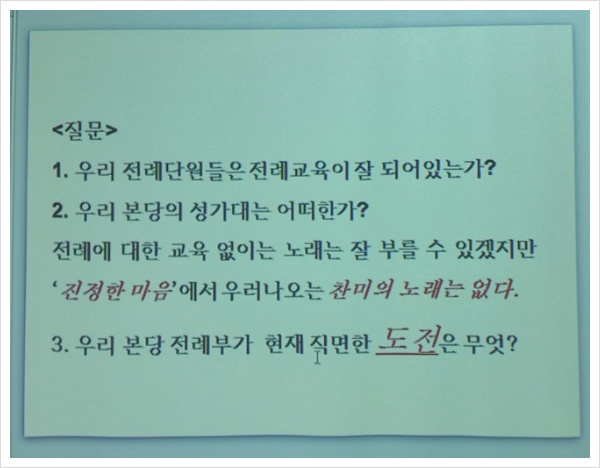 <질문>
1. 우리 전례단원들은 전례교육이 잘 되어있는가?
2. 우리 본당의 성가대는 어떠한가?
전례에 대한 교육 없이는 노래는 잘 부를 수 있겠지만
‘진정한 마음’에서 우러나오는 찬미의 노래는 없다.
3. 우리 본당 전례부가 현재 직면한 도전은 무엇?